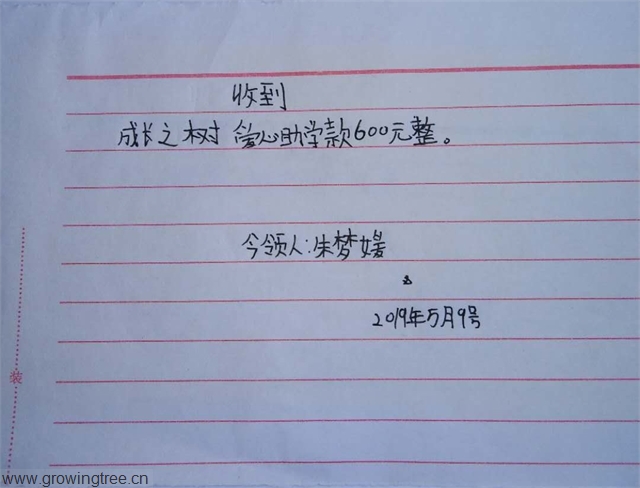 收到
成长之树 爱心助学款600元整。
今领人:朱梦媛
2019年5月9号
装
www.growingtree.cn